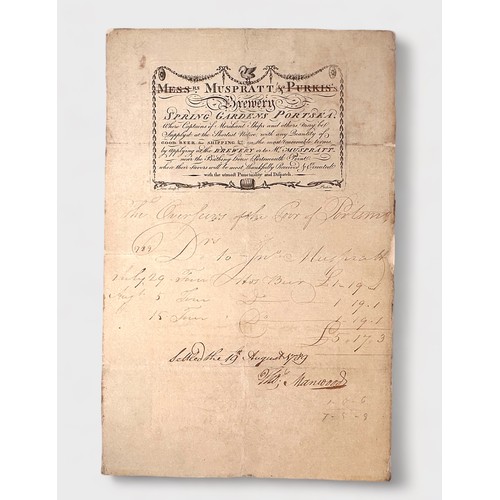 MESSRS MUSPRATT & PURKIS's
Brewery
SPRING GARDENS PORTSEA.
Where Captains of Merchant Ships and others may be
Supplyed at the Shortest Notice, with any Quantity of
GOOD BEER for SHIPPING &c on the most reasonable terms
by Applying at the BREWERY or to Mr MUSPRATT,
near the Bathing House Portsmouth Point
where their Favors will be most thankfully Received & Executed
with the utmost Punctuality and Dispatch.
The Overseers of the Poor of Portsmo
Dr to Jno Muspratt
July 29 Four Beer £1-19-1
Augt 8 Four Do 1 19-1
15 Four Do 1 19-1
£5 17,3
Settled the 19th August 1789
Manwood